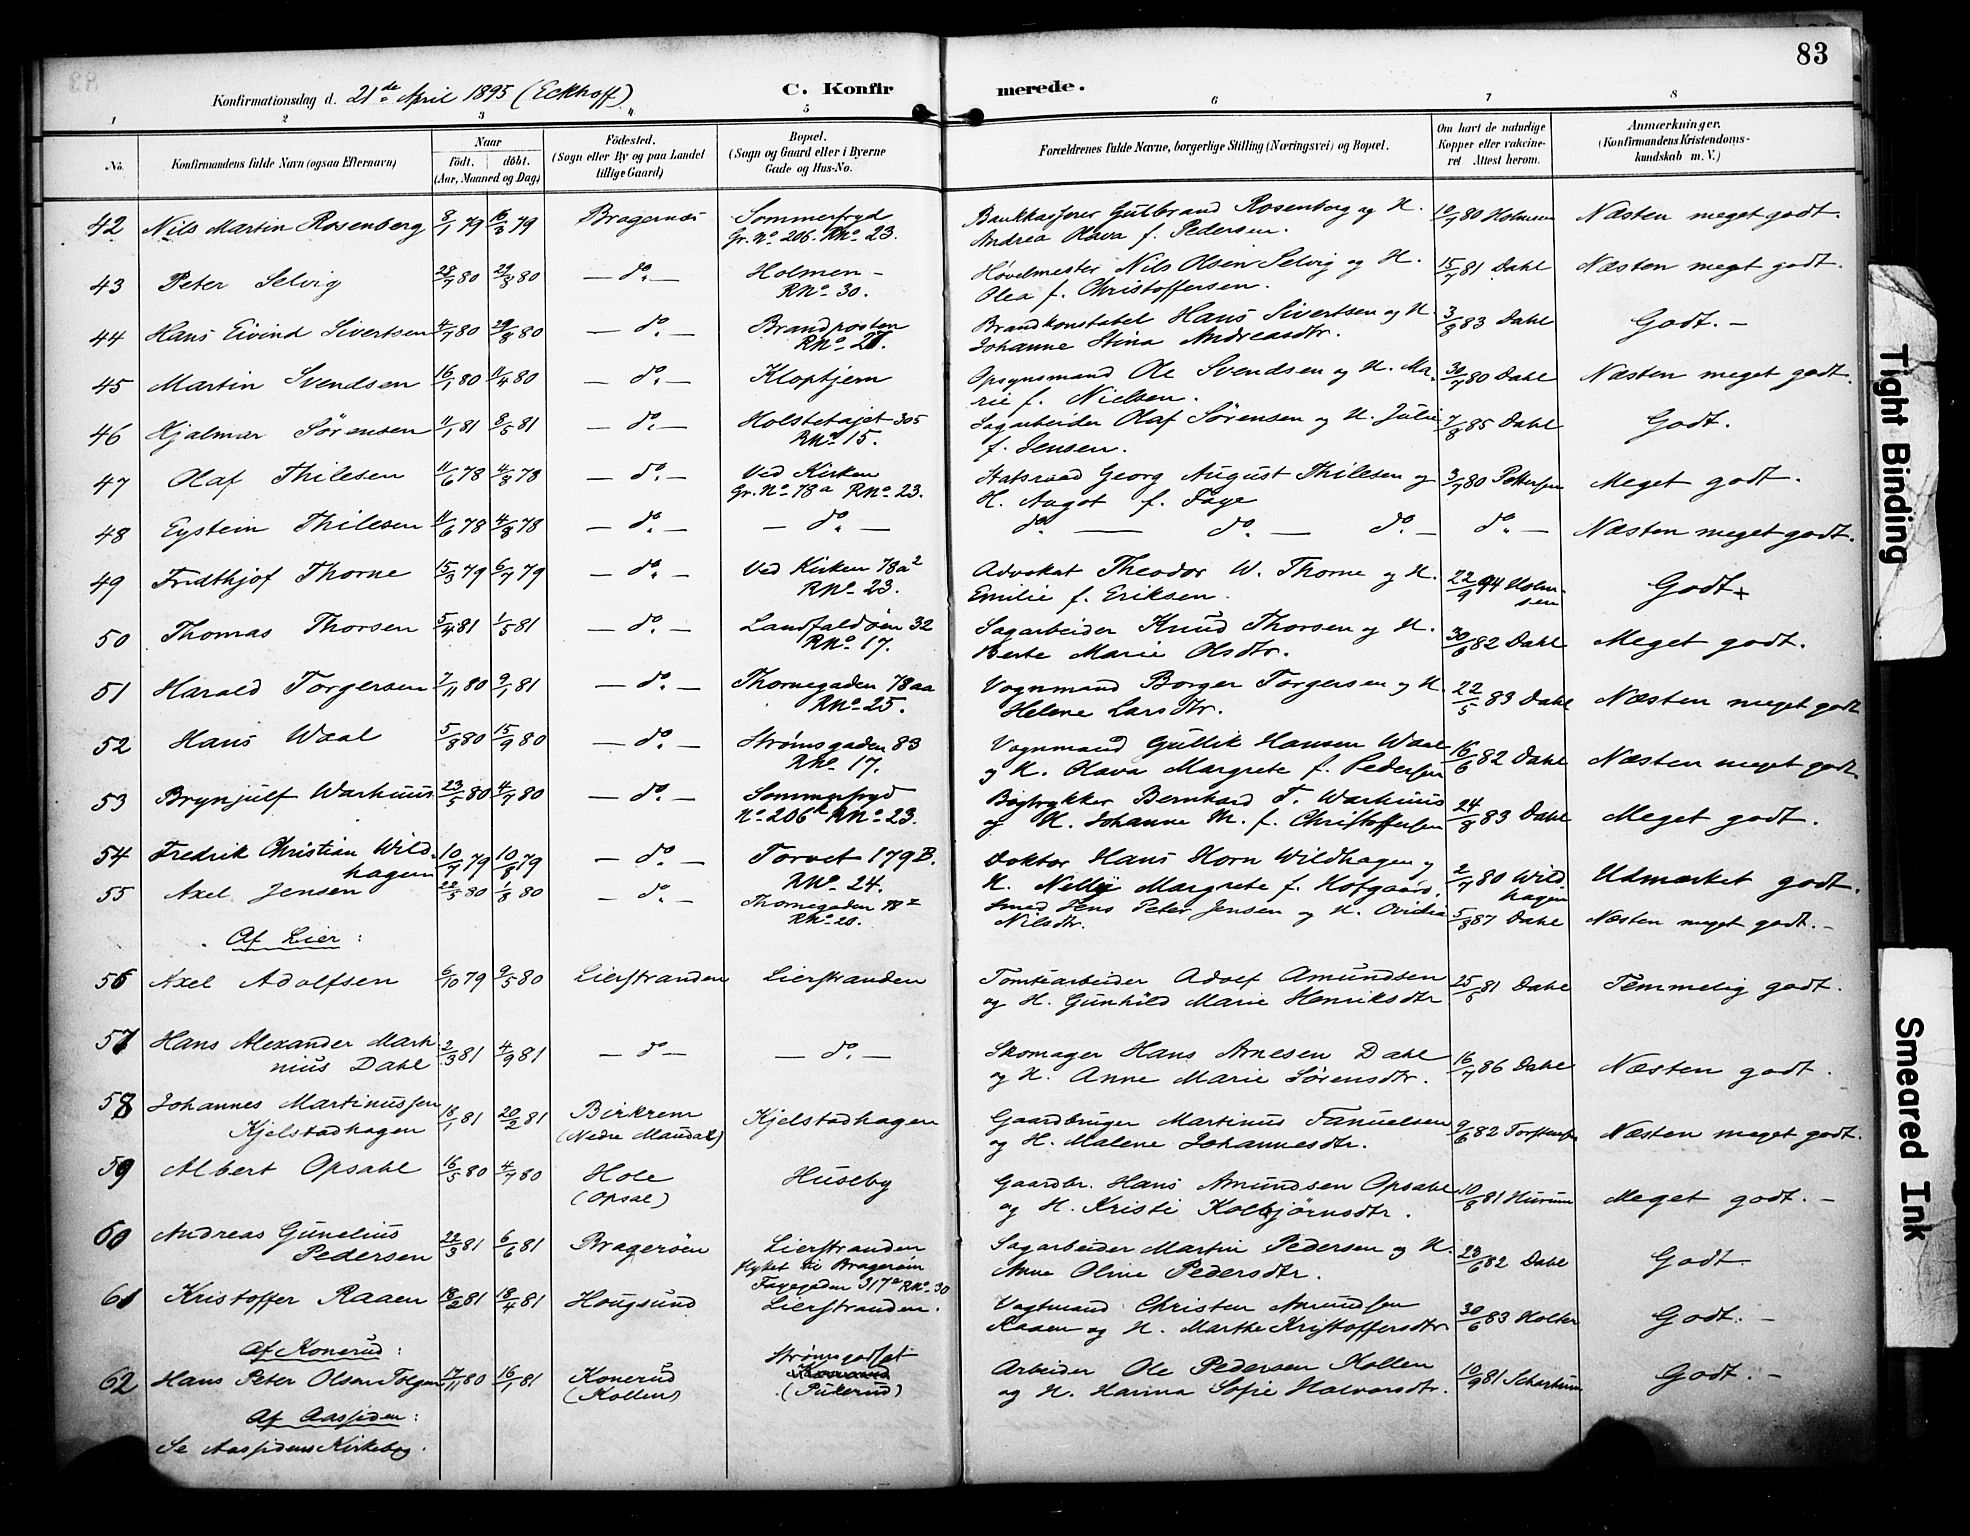 83
Konfirmationsdag d. 21de April 1895 (Eckhoff)
C. Konfirmerede.
1 2 3 4 5 6 7 8
No. Konfirmandens fulde Navn (ogsaa Efternavn) Naar födt. döbt. (Aar, Maaned og Dag) Födested. (Sogn eller By og paa Landet tillige Gaard) Bopæl. (Sogn og Gaard eller i Byerne Gade og Hus-No. Forældrenes fulde Navne, borgerlige Stilling (Næringsvei) og Bopæl. Om havt de naturlige Kopper eller vakcineret Attest herom. Anmærkninger. (Konfirmandens Kristendomskundskab m. V.)
42 Nils Martin Rosenberg 8/1 79 16/3 79 Bragernæs Sommerfryd Gr. No. 206. RNo. 23. Bankkasserer Gulbrand Rosenberg og H. Andrea Olava f. Pedersen. 10/7 80 Holmsen Næsten meget godt.
43 Peter Selvig 28/7 80 29/8 80 — do. — Holmen – RNo. 30. Høvelmester Nils Olsen Selvig og H. Olea f. Christoffersen. 15/7 81 Dahl Næsten meget godt.
44 Hans Eivind Sivertsen 4/7 80 29/8 80 — do. — Brandposten RNo. 21. Brandkonstabel Hans Sivertsen og H. Johanne Stina Andreasdtr. 3/8 83 Dahl Godt. –
45 Martin Svendsen 16/1 80 11/4 80 — do. — Kloptjern Opsynsmand Ole Svendsen og H. Marie f. Nielsen. 30/7 80 Dahl Næsten meget godt.
46 Hjalmar Sörensen 11/1 81 8/5 81 — do. — Holstetajet 305 RNo. 15. Sagarbeider Olaf Sörensen og H. Julie f. Jensen. 7/8 85 Dahl Godt.
47 Olaf Thilesen 11/6 78 4/8 78 — do. — Ved Kirken Gr. No. 78a RNo. 23. Statsraad Georg August Thilesen og H. Aagot f. Faye 3/7 80 Pettersen Meget godt.
48 Eystein Thilesen 11/6 78 4/8 78 — do. — — do. — do. — do. — do. — do. — Næsten meget godt.
49 Fridthjof Thorne 15/3 79 6/7 79 — do. — Ved Kirken 78a2 RNo. 23. Advokat Theodor W. Thorne og H. Emilie f. Eriksen. 22/9 94 Holmsen Godt
50 Thomas Thorsen 5/4 81 1/5 81 — do. — Landfaldøen 32 RNo. 17. Sagarbeider Knud Thorsen og H. Berte Marie Olsdtr. 30/6 82 Dahl Meget godt.
51 Harald Torgersen 7/11 80 9/1 81 — do. — Thornegaden 78aa RNo. 25. Vognmand Borger Torgersen og H. Helene Larsdtr. 22/5 83 Dahl Næsten meget godt
52 Hans Waal 5/8 80 15/9 80 — do. — Strømsgaden 83 RNo. 17. Vognmand Gullik Hansen Waal og H. Olava Margrete f. Pedersen 16/6 82 Dahl Næsten meget godt.
53 Brynjulf Warhuus 23/5 80 4/7 80 — do. — Sommerfryd No. 206k RNo. 23. Bogtrykker Bernhard T. Warhuus og H. Johanne M. f. Christoffersen 24/8 83 Dahl Meget godt.
54 Fredrik Christian Wildhagen 10/7 79 10/8 79 — do. — Torvet 179 B. RNo. 24. Doktor Hans Horn Wildhagen og H. Nelly Margrete f. Hofgaard. 2/7 80 Wildhagen Udmærket godt.
55 Axel Jensen 22/5 80 1/8 80 — do. — Thornegaden 78 RNo. 20. Smed Jens Peter Jensen og H. Ovidia Nilsdtr. 5/8 87 Dahl Næsten meget godt. –
Af Lier:
56 Axel Adolfsen 6/10 79 9/5 80 Lierstranden Lierstranden Tomtearbeider Adolf Amundsen og H. Gunhild Marie Henriksdtr 25/5 81 Dahl Temmelig godt.
57 Hans Alexander Martinius Dahl 2/3 81 4/9 81 — do — — do. — Skomager Hans Arnesen Dahl og H. Anne Marie Sörensdtr. 16/7 86 Dahl Næsten godt.
58 Johannes Martinussen Kjelstadhagen 18/1 81 20/2 81 Birkrem (Nedre Maudal) Kjelstadhagen Gaardbruger Martinus Tanuelsen og H. Malene Johannesdtr. 9/6 82 Næsten meget godt.
59 Albert Opsahl 16/5 80 4/7 80 Hole (Opsal) Huseby Gaardbr. Hans Amundsen Opsahl og H. Kristi Kolbjørnsdtr. 10/8 81 Hurum Meget godt. –
60 Andreas Gunelius Pedersen 22/3 81 6/6 81 Bragerøen Lierstranden flyttet til Bragerøen Fayegaden 317a RNo. 30 Sagarbeider Martin Pedersen og H. Anne Oline Pedersdtr. 23/6 82 Dahl Godt
61 Kristoffer Raaen 18/2 81 18/4 81 Hougsund Lierstranden. Vagtmand Christen Amundsen Raaen og H. Marthe Kristoffersdtr 30/6 83 Holter Godt. –
Af Konerud:
62 Hans Peter Olsen 17/11 80 16/1 81 Konerud (Kollen) Strømsgodset (Puterud) Arbeider Ole Pedersen Kollen og H. Hanna Sofie Halvorsdtr. 10/9 81 Scharhum Godt. –
Af Aassiden:
Se Aassidens Kirkebog.
Tight Binding
Smeared Ink